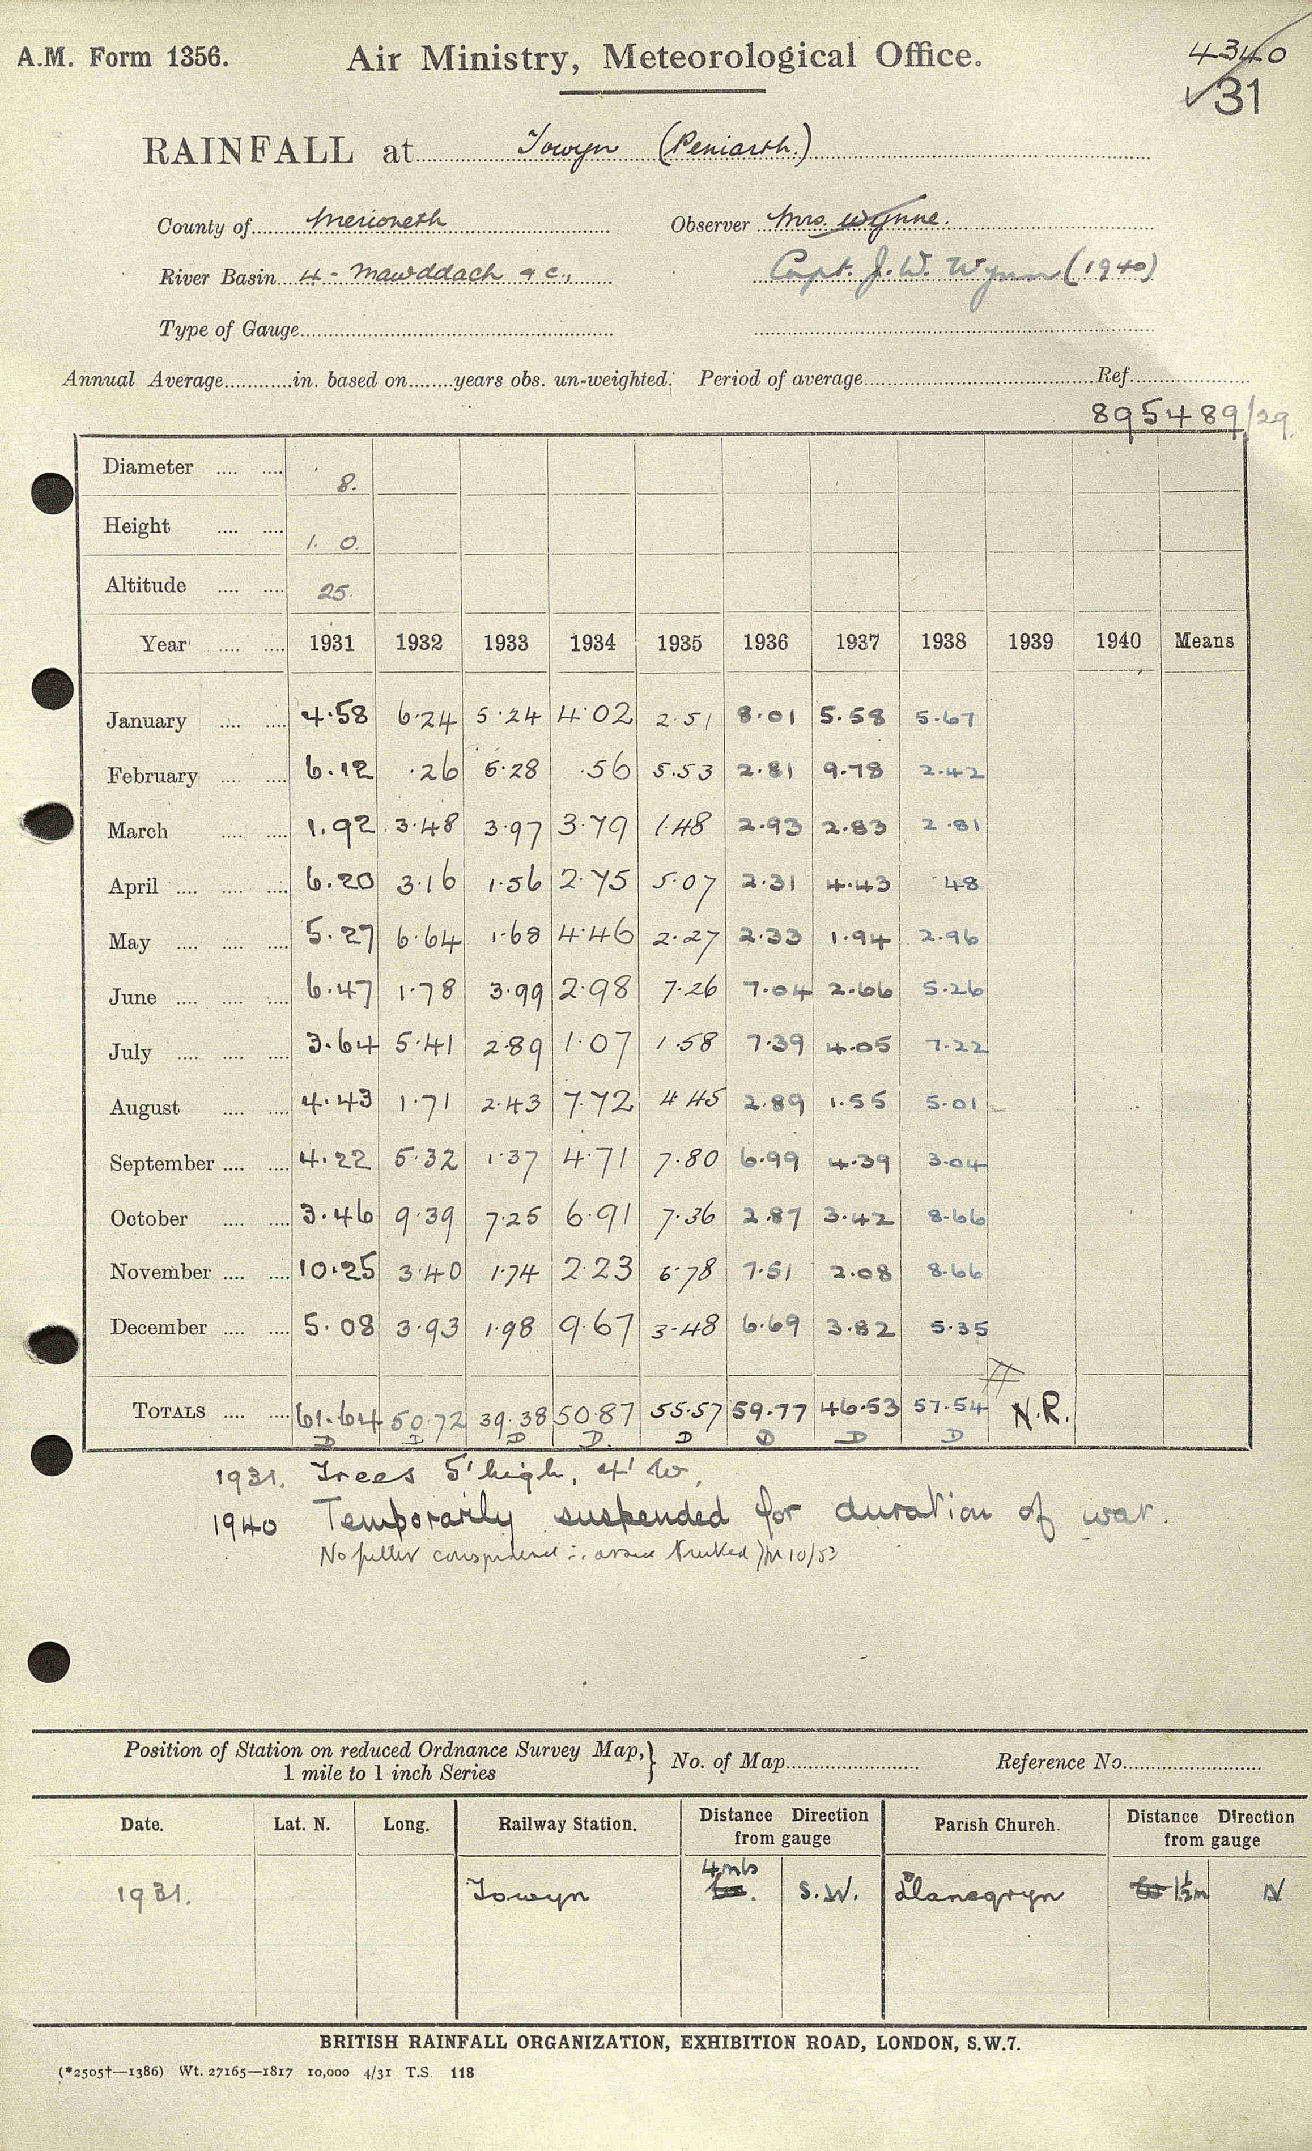 A.M. Form 1356. Air Ministry, Meteorological Office. 4340
31
RAINFALL at Towyn (Peniarth.)
County of Merioneth Observer Mrs. Wynne.
River Basin 4 - Mawddach & c., Capt. J. W. Wynn (1940)
Type of Gauge
Annual Average in. based on years obs. un-weighted. Period of average Ref.
895489/29.
Diameter 8.
Height 1. 0.
Altitude 25.
Year 1931 1932 1933 1934 1935 1936 1937 1938 1939 1940 Means
January 4.58 6.24 5.24 4.02 2.51 8.01 5.58 5.67
February 6.12 .26 5.28 .56 5.53 2.81 9.78 2.42
March 1.92 3.48 3.97 3.79 1.48 2.93 2.83 2.81
April 6.20 3.16 1.56 2.75 5.07 2.31 4.43 48
May 5.27 6.64 1.68 4.46 2.27 2.33 1.94 2.96
June 6.47 1.78 3.99 2.98 7.26 7.04 2.66 5.26
July 3.64 5.41 2.89 1.07 1.58 7.39 4.05 7.22
August 4.43 1.71 2.43 7.72 4.45 2.89 1.55 5.01
September 4.22 5.32 1.37 4.71 7.80 6.99 4.39 3.04
October 3.46 9.39 7.25 6.91 7.36 2.87 3.42 8.66
November 10.25 3.40 1.74 2.23 6.78 7.51 2.08 8.66
December 5.08 3.93 1.98 9.67 3.48 6.69 3.82 5.35
TOTALS 61.64 50.72 39.38 50.87 55.57 59.77 46.53 57.54 N.R.
D D D D. D D D D
1931. Trees 5' high, 4' W.
1940 Temporarily suspended for duration of war.
No further 10/53
Position of Station on reduced Ordnance Survey Map, } No. of Map Reference No.
1 mile to 1 inch Series
Date. Lat. N. Long. Railway Station. Distance Direction from gauge Parish Church. Distance Direction from gauge
1931. Towyn 4 mls S.W. Llanegryn 1½m N
BRITISH RAINFALL ORGANIZATION, EXHIBITION ROAD, LONDON, S.W.7.
(*2505†—1386) Wt. 27165—1817 10,000 4/31 T.S. 118